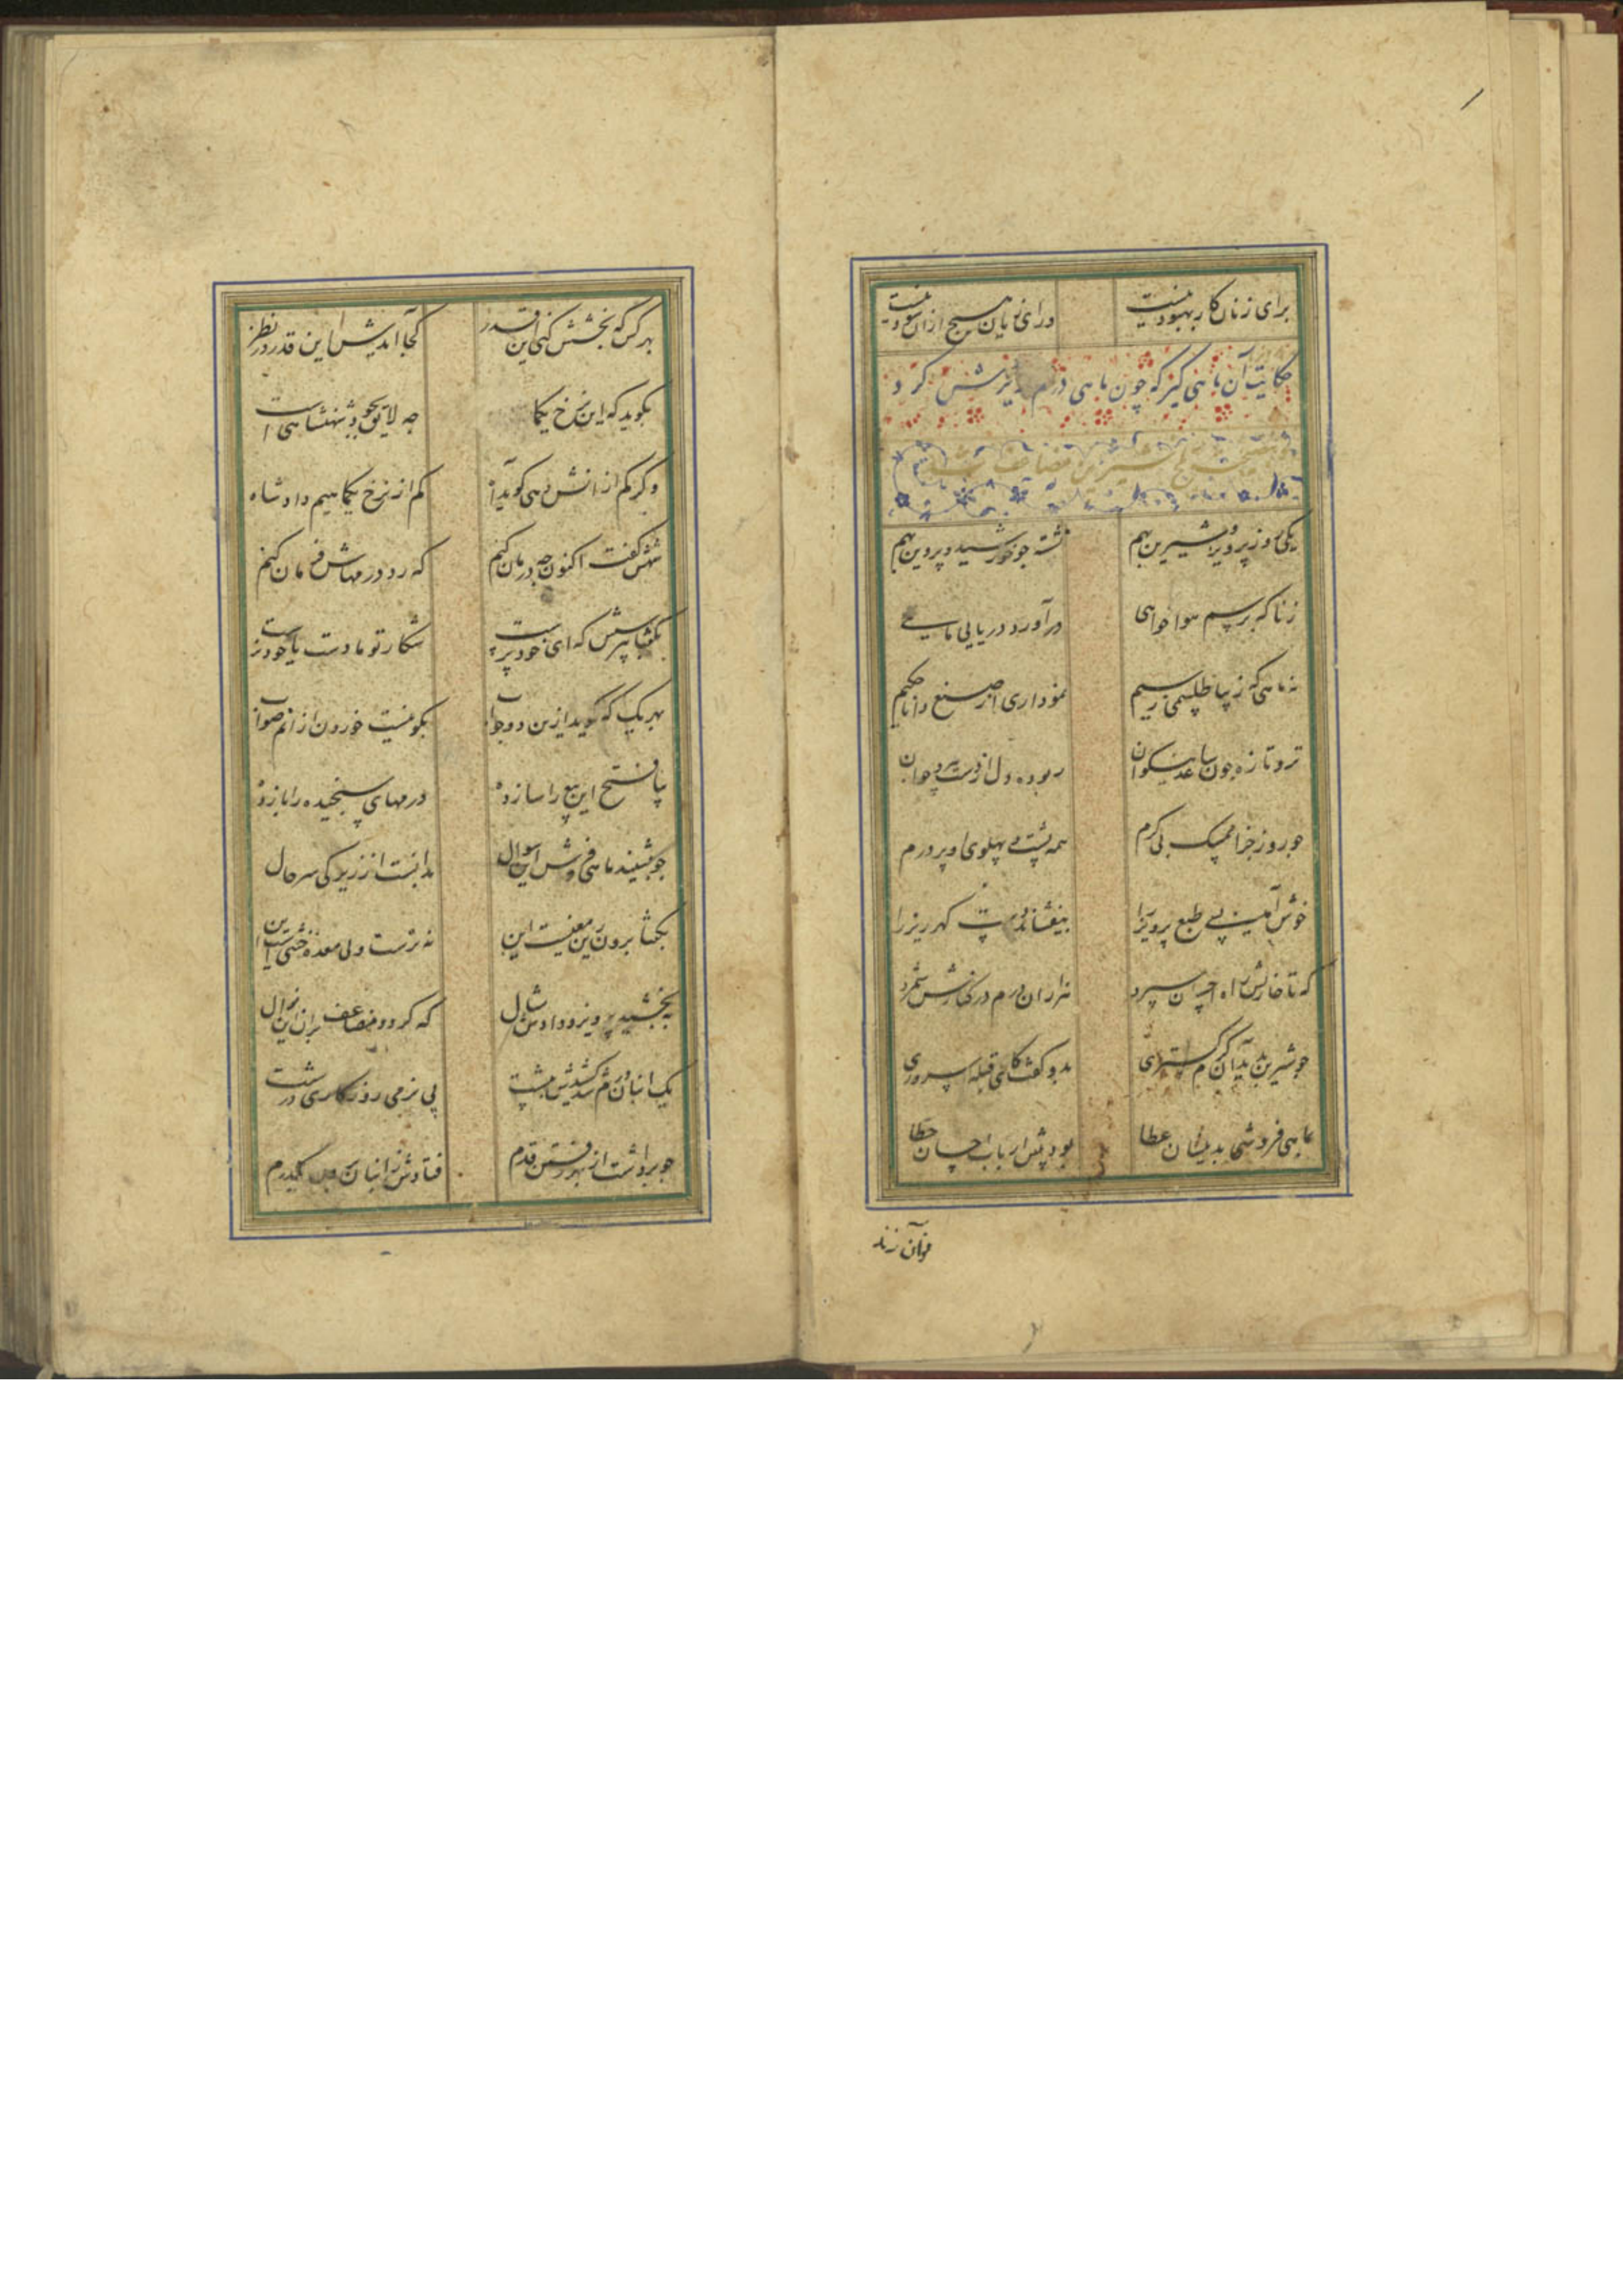 برای زنان کار بهبود نیست
ورای زیان هیچ ازان سود نیست
حکایت آن ماهی گیر که چون ماهی درم ریزش کرد
یکی روز پرویز و شیرین بهم
نشسته چو خورشید و پروین بهم
ز ناگه برسم هواخواهی
درآورد دریایی ماهیی
نه ماهی که زیبا طلسمی ز سیم
نموداری از صنع دانا حکیم
تر و تازه چون ساعد نیکوان
ربوده دل از دست پیر و جوان
چو روز جزا ممسک بی کرم
همه پشت و پهلوی او پر درم
خوش آمد پی طبع پرویز را
بیفشاند دست گهرریز را
که تا خازنش راه احسان سپرد
هزاران درم در کنارش شمرد
چو شیرین بدید آن کرم گستری
بدو گفت کای قبله سروری
بماهی فروشی بدینسان عطا
بود پیش ارباب احسان خطا
هر کس که بخشش کنی این قدر
کجا آیدش این قدر در نظر
بگوید که این نرخ یکماهی است
چه لایق بجود شهنشاهی است
وگر کم از انش دهی گوید آه
کم از نرخ یک ماهیم داد شاه
شهش گفت اکنون چه درمان کنم
که رد درمهاش فرمان کنم
بگفتا بپرسش که ای خودپرست
شکار تو مادست یا خود نرست
بهر یک که گوید ازین دو جواب
بگو نیست خوردن ازانم صواب
پی فسخ این بیع را ساز ده
درمهای سنجیده را باز ده
چو بشنید ماهی فروش این سوال
بدانست از زیرکی سر حال
بگفتا برون زین معنیست این
نه نرست ولی ماده خنثی است این
بخندید پرویز و دادش مثال
که گردد مضاعف بران این نوال
یک انبان درم شد کشیدش به پشت
پی نرمی روزگاری درشت
چو برداشت از بهر رفتن قدم
فتادش ز انبان برون یک درم